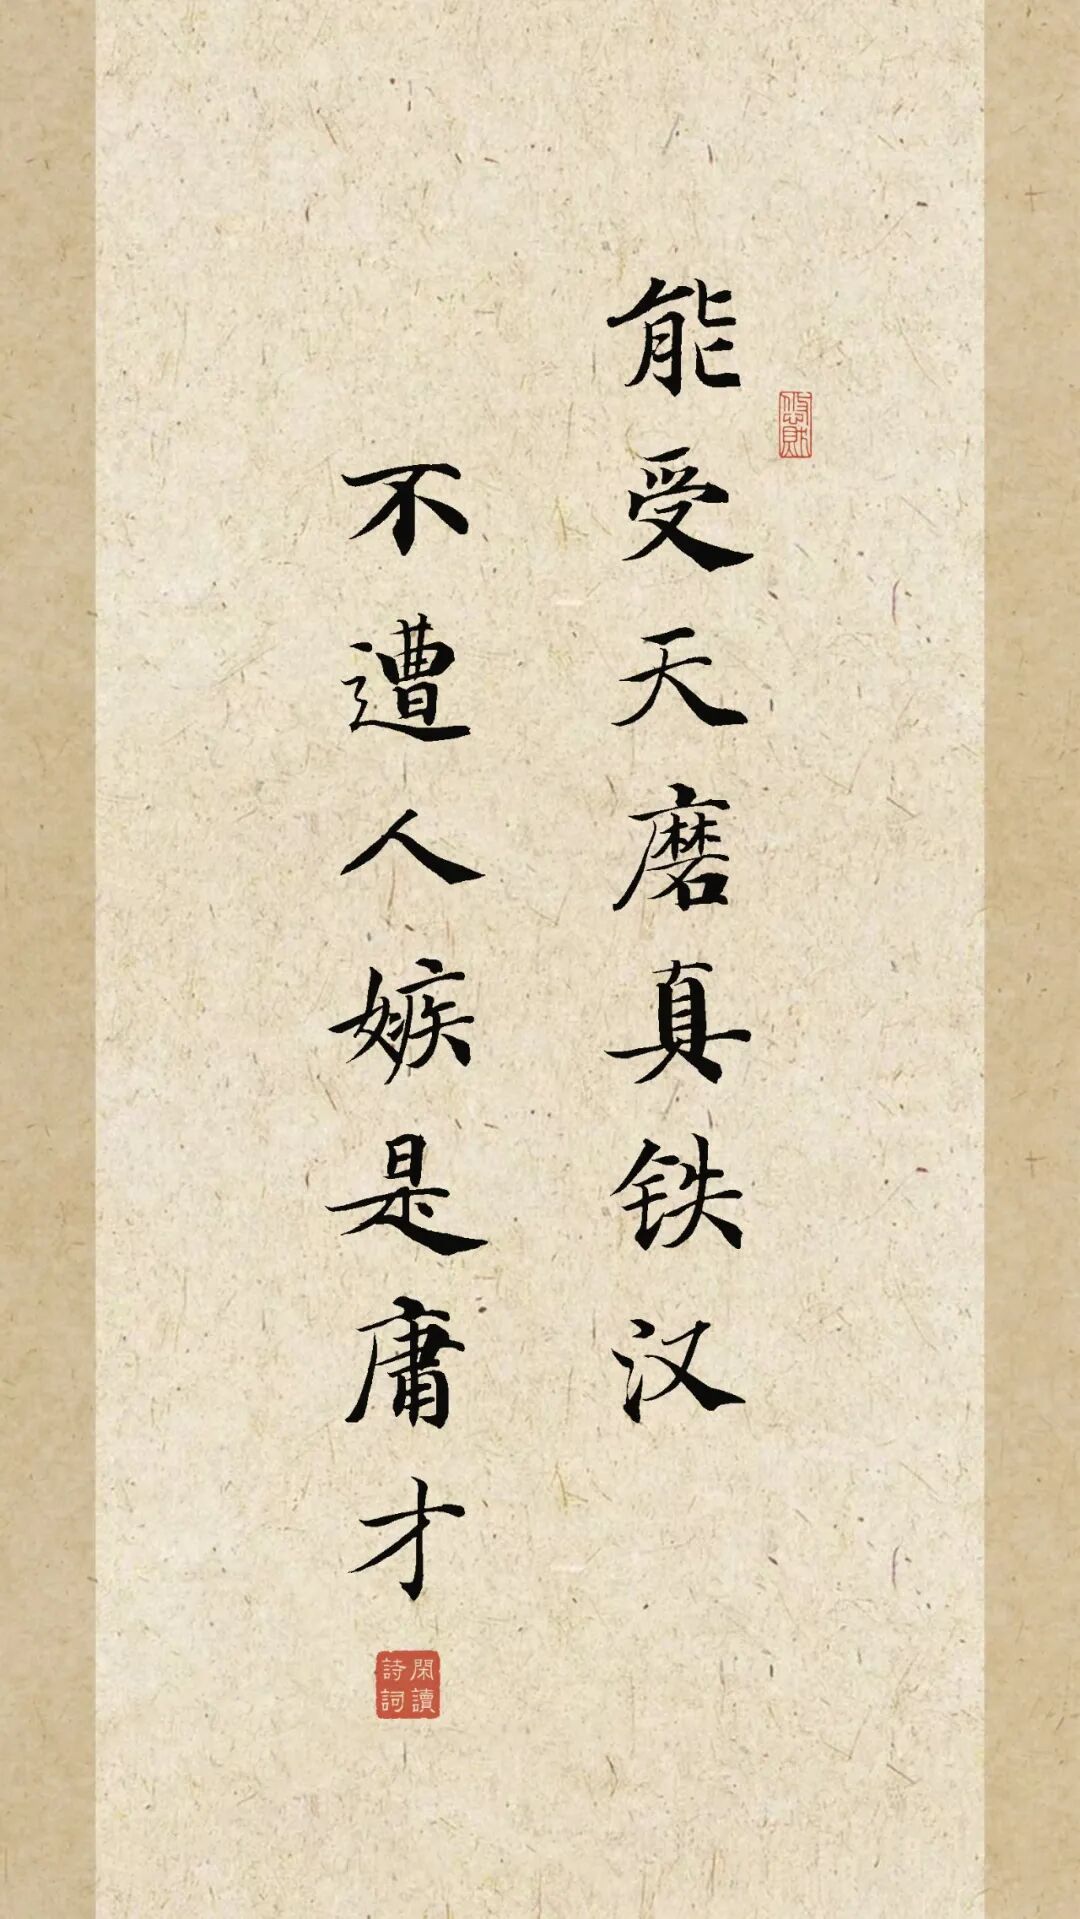 能受天磨真铁汉
不遭人嫉是庸才
閑讀
詩詞